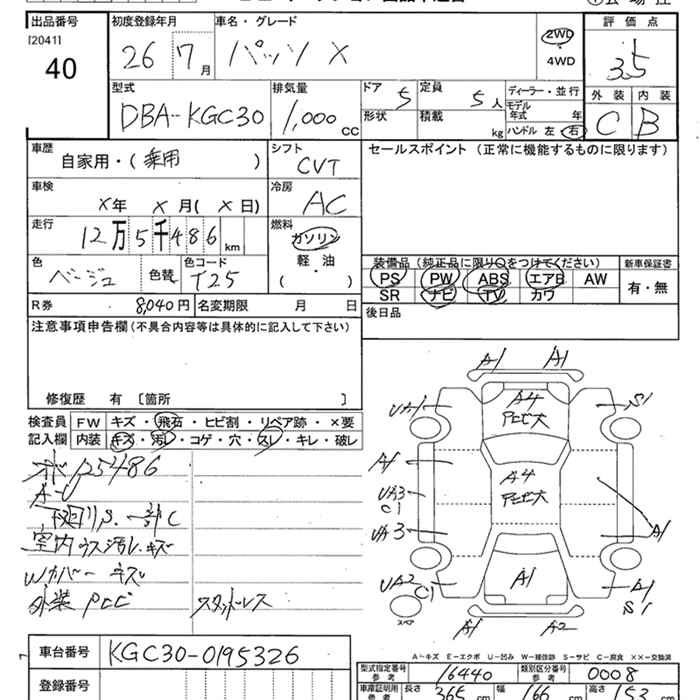 出品番号 初度登録年月 車名・グレード 評価点
[2041]
40
26 7月 パッソ X 2WD 4WD 3.5
型式 排気量 ドア 定員 ディーラー・並行 外装 内装
DBA-KGC30 1,000cc 5 5人 モデル年式 年 C B
形状 積載 kg ハンドル 左・右
車歴 自家用・(乗用) シフト CVT セールスポイント (正常に機能するものに限ります)
車検 X年 X月(X日) 冷房 AC
走行 12万5千486km 燃料 ガソリン 軽・油 ( )
色 ベージュ 色替 色コード T25
装備品 (純正品に限り○をつけてください) 新車保証書
PS PW ABS エアB AW 有・無
SR ナビ TV カワ
R券 8,040円 名変期限 月 日 後日品
注意事項申告欄(不具合内容等は具体的に記入して下さい)
修復歴 有 [箇所 ]
検査員 FW キズ・飛石・ヒビ割・リペア跡・×要
記入欄 内装 キズ・汚レ・コゲ・穴・スレ・キレ・破レ
A1 A1
A4
UA1 S1
A1 A4
UA3
C1
UA3 A1
UA2 C1 A1 A1
S1
スペア A1 A2
下廻りS.一部C
室内ウス汚レ.キズ
Wカバー キズ
外装 PCC スタッドレス
A-キズ E-エクボ U-凹み W-補修跡 S-サビ C-腐食 ××-交換済
車台番号 KGC30-0195326
型式指定番号 参考 16440 類別区分番号 参考 0008
登録番号 車庫証明用 参考 長さ 365cm 幅 166cm 高さ 153cm